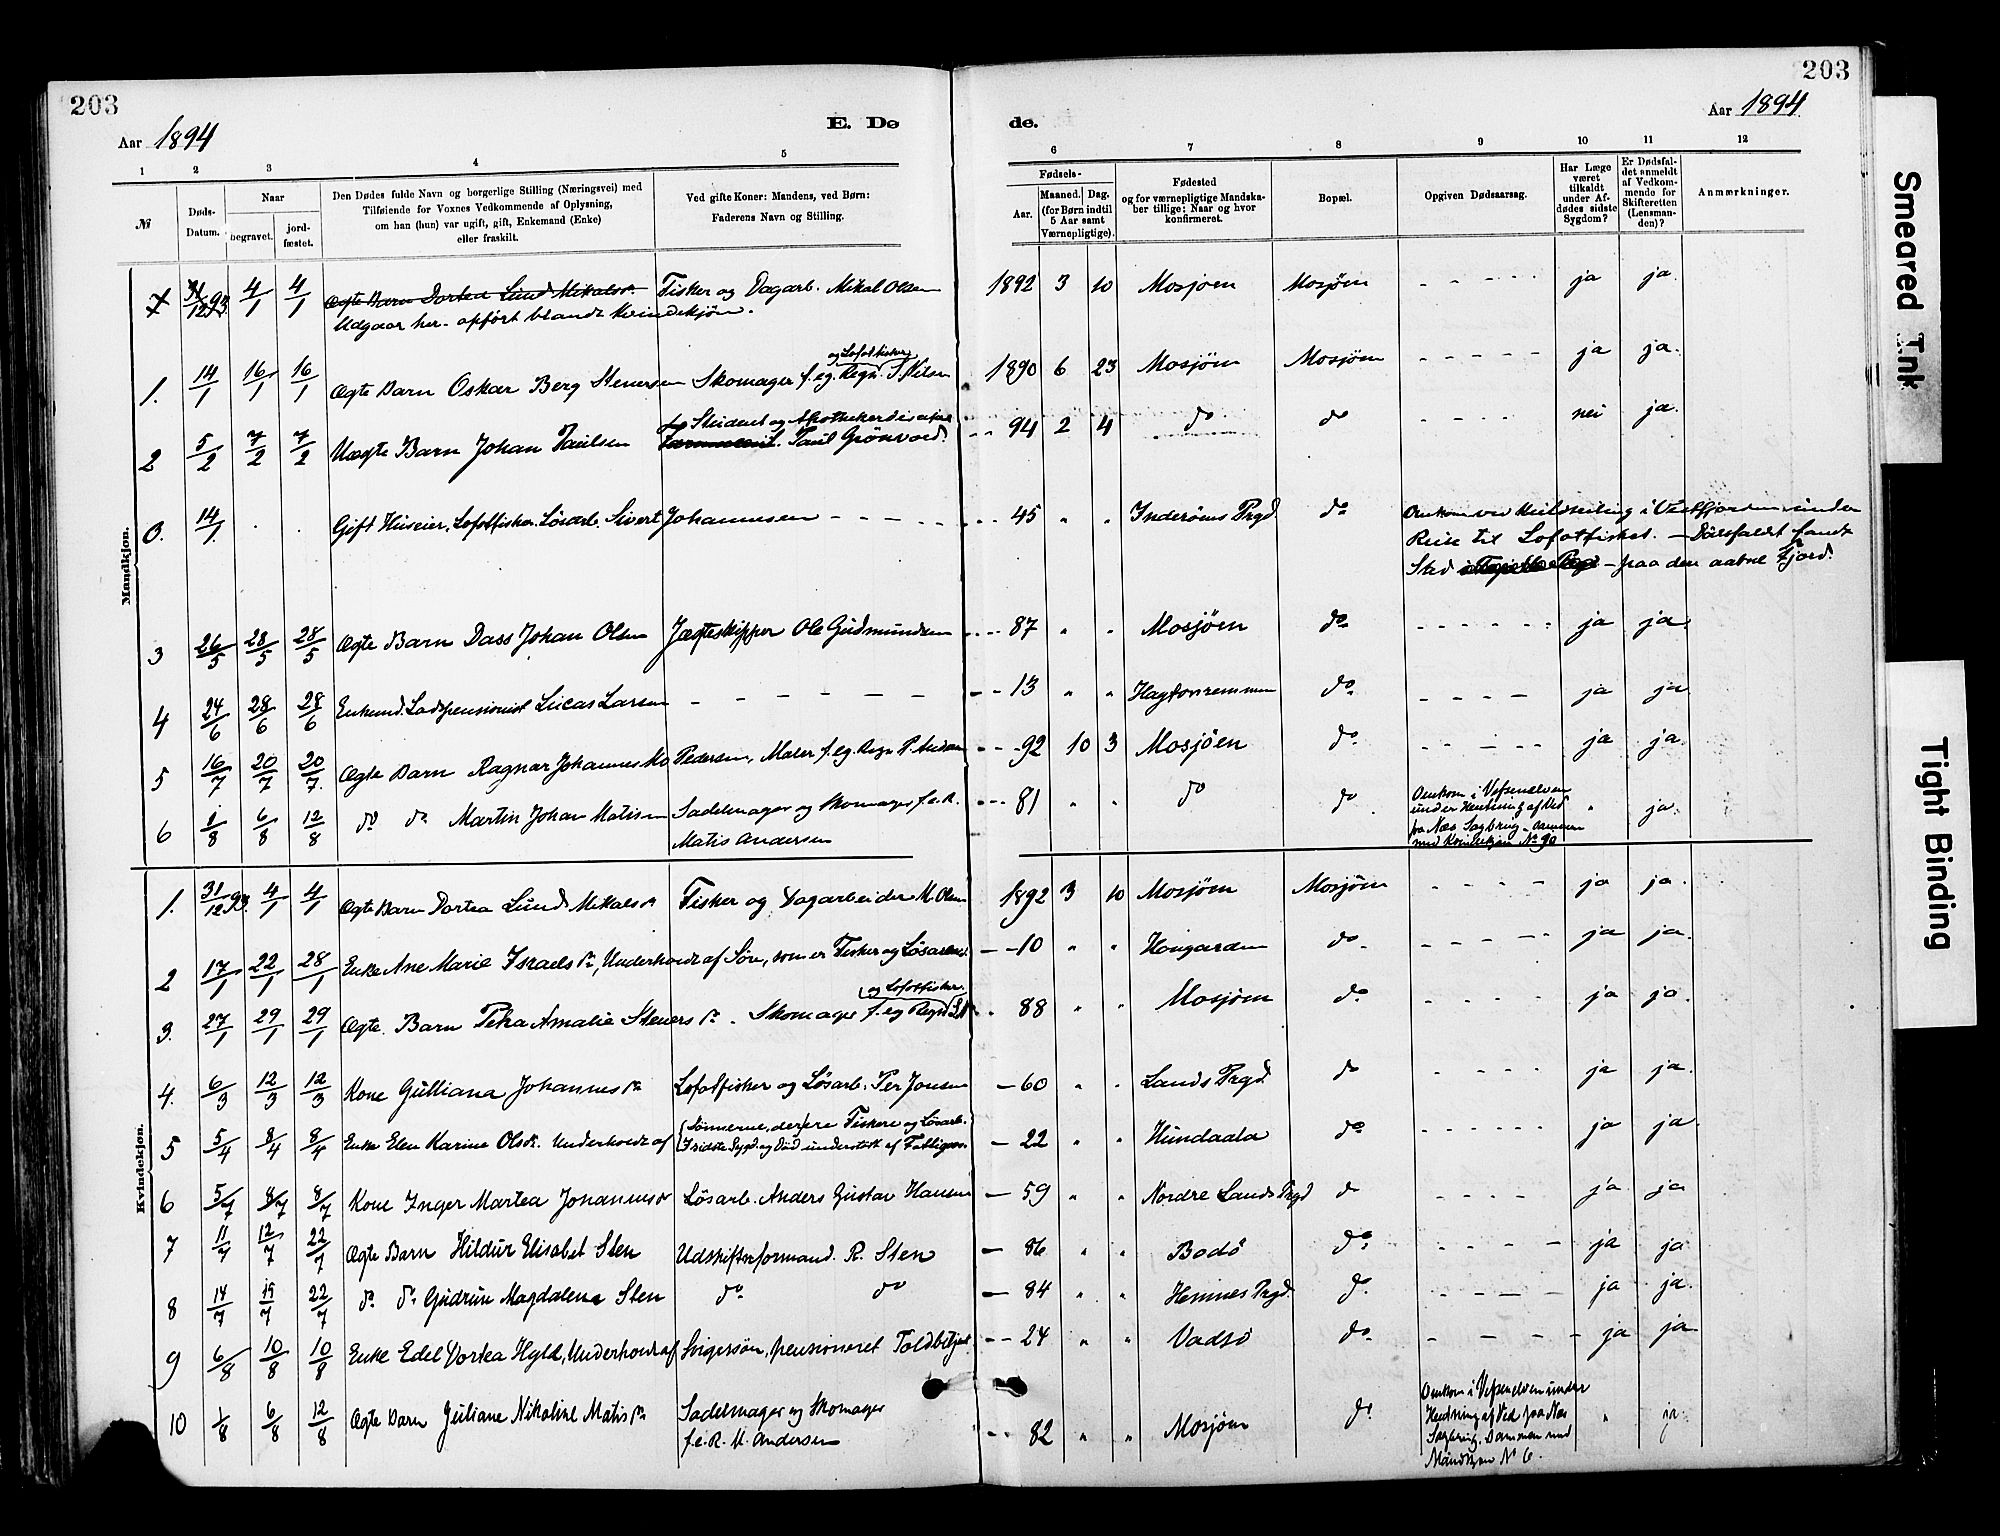 203
203
Aar 1894
E. Dø
de.
Aar 1894
1 2 3 4 5 6 7 8 9 10 11 12
№
Døds-Datum.
Naar
begravet.
jord-fæstet.
Den Dødes fulde Navn og borgerlige Stilling (Næringsvei) med
Tilføiende for Voxnes Vedkommende af Oplysning,
om han (hun) var ugift, gift, Enkemand (Enke)
eller fraskilt.
Ved gifte Koner: Mandens, ved Børn:
Faderens Navn og Stilling.
Fødsels-
Aar.
Maaned. Dag.
(for Børn indtil
5 Aar samt
Værnepligtige).
Fødested
og for værnepligtige Mandska-
ber tillige: Naar og hvor
konfirmeret.
Bopæl.
Opgiven Dødsaarsag.
Har Læge
været
tilkaldt
under Af-
dødes sidste
Sygdom?
Er Dødsfal-
det anmeldt
af Vedkom-
mende for
Skifteretten
(Lensman-
den)?
Anmærkninger.
Mandkjøn.
31/12 93. 4/1 4/1 Ægte Barn Dortea Lund Mikalsdr. Fisker og Dagarb. Mikal Olsen 1892 3 10 Mosjøen Mosjøen - - - - ja ja.
Udgaar her - opført blandt Kvindekjøn.
og Lofotfisker
1. 14/1 16/1 16/1 Ægte Barn Oskar Berg Stenersen Skomager f. eg. Regn. S. Nilsen 1890 6 23 Mosjöen Mosjöen - - - - - ja ja.
Student og Apothekerdisc
2 5/2 7/2 7/2 Uægte Barn Johan Paulsen Paul Grönvold. - - 94 2 4 do do - - - - nei ja.
0. 14/1 . . Gift Huseier, Lofotfisker Lösarb. Sivert Johannesen - - - - 45 " " Inderöens Prgd do Omkom ved Kuldseiling i Vestfjorden under
Reise til Lofotfisket. - Dödsfaldet fandt
Sted - paa den aabne Fjord.
3 26/5 28/5 28/5 Ægte Barn Dass Johan Olsen Jægteskipper Ole Gudmundsen - - - 87 " " Mosjöen do - - - - - ja ja.
4 24/6 28/6 28/6 Enkemd. Ladspensionist Lucas Larsen - - - - - - - - 13 " " do - - - - ja ja
5 16/7 20/7 20/7 Ægte Barn Ragnar Johannes Pedersen, Maler f. eg. Regn P. - - - 92 10 3 Mosjöen do - - - - ja ja.
6 1/8 6/8 12/8 do do Martin Johan Matisen Sadelmager og Skomager f. e. R. - - - 81 " " do do Omkom i Vefsenelven
under Hentning af Ved " ja.
Matis Andersen
fra Næs Sagbrug - sammen
med Kvindekjøn No 90
Kvindekjøn.
1. 31/12 93. 4/1 4/1 Ægte Barn Dortea Lund Mikalsdr Fisker og Dagarbeider M. Olsen 1892 3 10 Mosjöen Mosjöen - - - - ja ja.
2 17/1 22/1 28/1 Enke Ane Marie Israelsdr, Underholdt af Sön, som er Fisker og Lösarb - - 10 " " Hougarden do - - - - - ja ja.
og Lofotfisker.
3. 27/1 29/1 29/1 Ægte Barn Petra Amalie Stenersdr. Skomager f. eg Regn S. N. 88 " " Mosjöen do - - - - ja ja.
4. 6/3 12/3 12/3 Kone Gulliana Johannesdr Lofotfisker og Lösarb. Per Jonsen - 60 " " Lands Prgd do - - - - - ja ja.
5 5/4 8/4 8/4 Enke Elen Karine Olsdr. Underholdt af Sönnerne, dersere Fiskere og Lösarb.
I sidste Sygd. og Död understött af Fattigvæs. - 22 " " Hundaala do - - - - - ja ja.
6 5/7 8/7 8/7 Kone Inger Martea Johannesdr Lösarb. Anders Gustav Hansen - 59 " " Nordre Lands Prgd do - - - - ja ja
7 11/7 12/7 22/7 Ægte Barn Hildur Elisabet Sten Udskiftsformand. R. Sten - 86 " " Bodö do. - - - - ja ja
8 14/7 19/7 22/7 do do Gudrun Magdalene Sten do do - 84 " " Hemnes Prgd. do. - - - - ja ja.
9 6/8 10/8 10/8 Enke Edel Dortea Hyld, Underholdt af Svigersön, pensioneret Toldbetjent - - 24 " " Vadsö do. - - - - ja ja
10 1/8 6/8 12/8 Ægte Barn Juliane Nikoline Matisdr Sadelmager og Skomager
f. e. R. M. Andersen - - - 82 " " Mosjöen do Omkom i Vefsenelven under
Hentning af Ved fra Næs
Sagbrug. Sammen med
Mandkjøn No 6. " ja.
Smeared Ink
Tight Binding